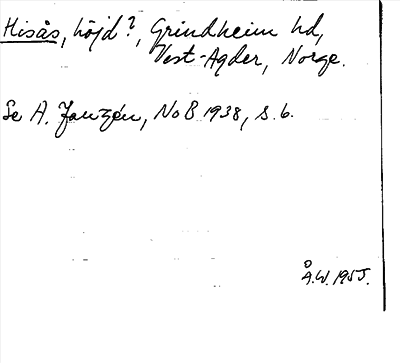 Hisås, höjd?, Grindheim hd,
Vest-Agder, Norge.
Se A. Janzén, NoB 1938, s. 6.
Å.W. 1955.